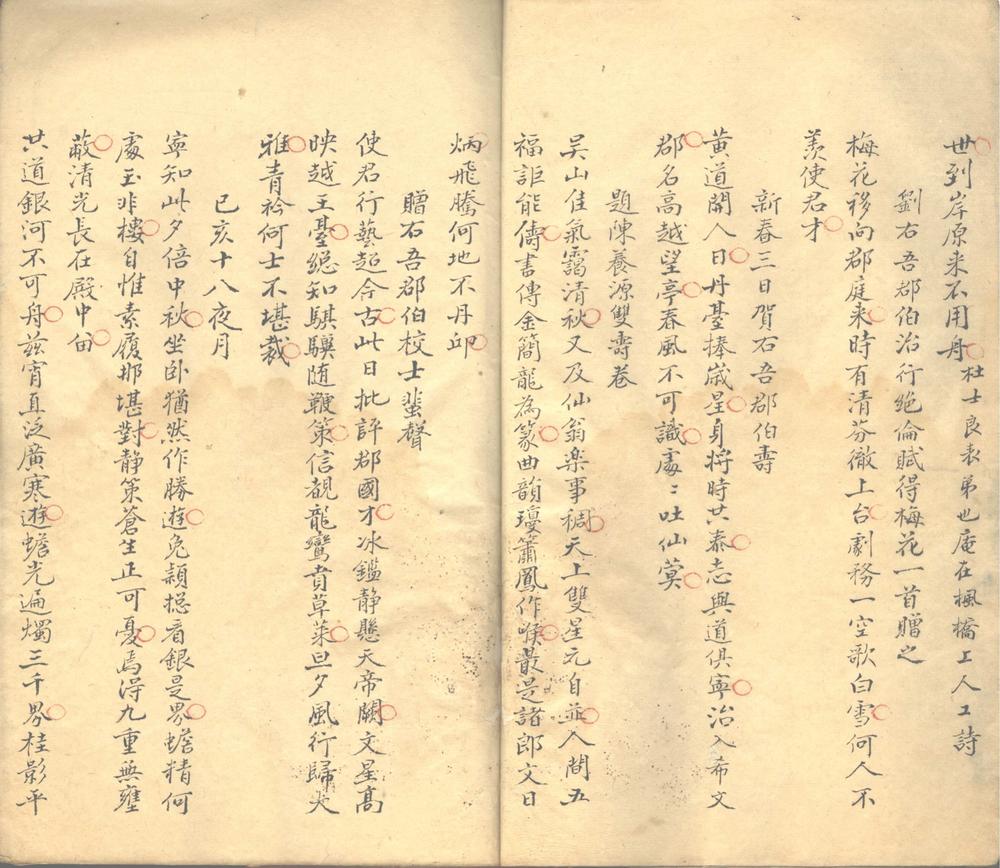 世到岸原来不用舟杜士良表弟也庵在楓橋上人工詩
劉右吾郡伯治行絶倫賦得梅花一首贈之
梅花移向郡庭来時有清芬徹上台劇務一空歌白雪何人不
羨使君才
新春三日賀石吾郡伯壽
黄道開人日丹臺捧嵗星身將時共泰志與道俱寧治入希文
郡名高越望亭春風不可識處〻吐仙蓂
題陳養源雙壽卷
吴山佳氣靄清秋又及仙翁楽事稠天上雙星元自並人間五
福詎能儔書傳金簡龍為篆曲韻瓊簫鳳作喉最是諸郎文日
炳飛騰何地不丹邱
贈石吾郡伯校士蜚聲
使君行藝超今古此日批評郡國才冰鑑静懸天帝闕文星髙
映越王臺總知騏驥随鞭策信覩龍鸞賁草萊旦夕風行歸大
雅青衿何士不堪裁
已亥十八夜月
寧知此夕倍中秋坐卧猶然作勝遊兔頴摠看銀是界蟾精何
處玉非樓自惟素履那堪對静策蒼生正可憂焉得九重無壅
蔽清光長在殿中甶
共道銀河不可舟兹宵直泛廣寒遊蟾光遍燭三千界桂影平